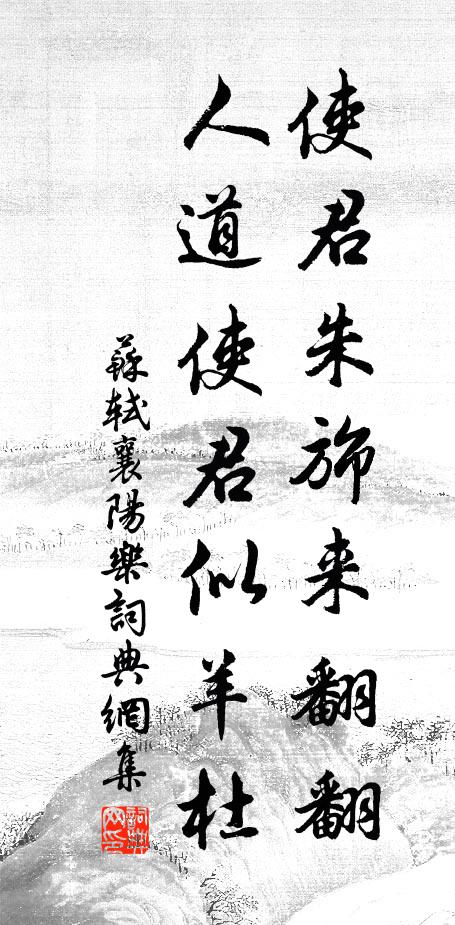 使君朱旆来翻翻
人道使君似羊杜
蘇軾襄陽樂詞典網集
詞典
网印